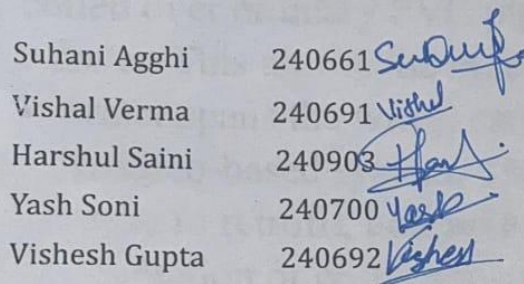 Suhani Agghi 240661
Vishal Verma 240691 Vishal
Harshul Saini 240903
Yash Soni 240700 Yash
Vishesh Gupta 240692 Vishesh